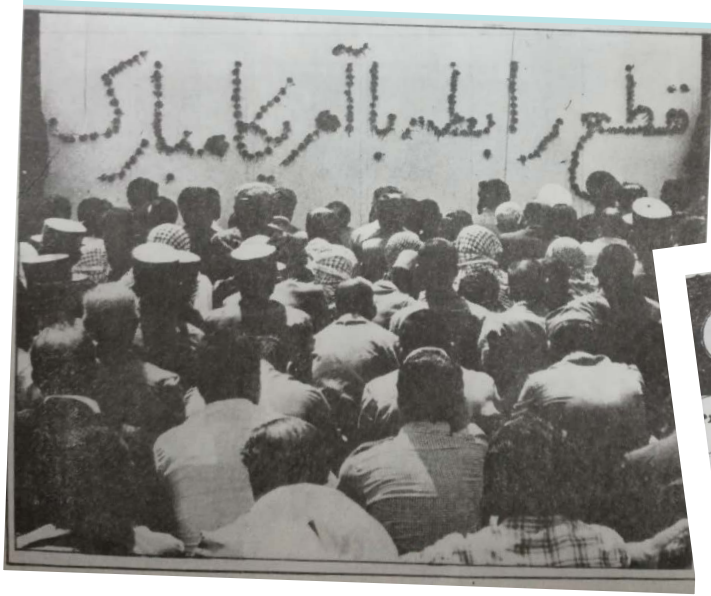 قطع رابطه با آمریکا مبارک